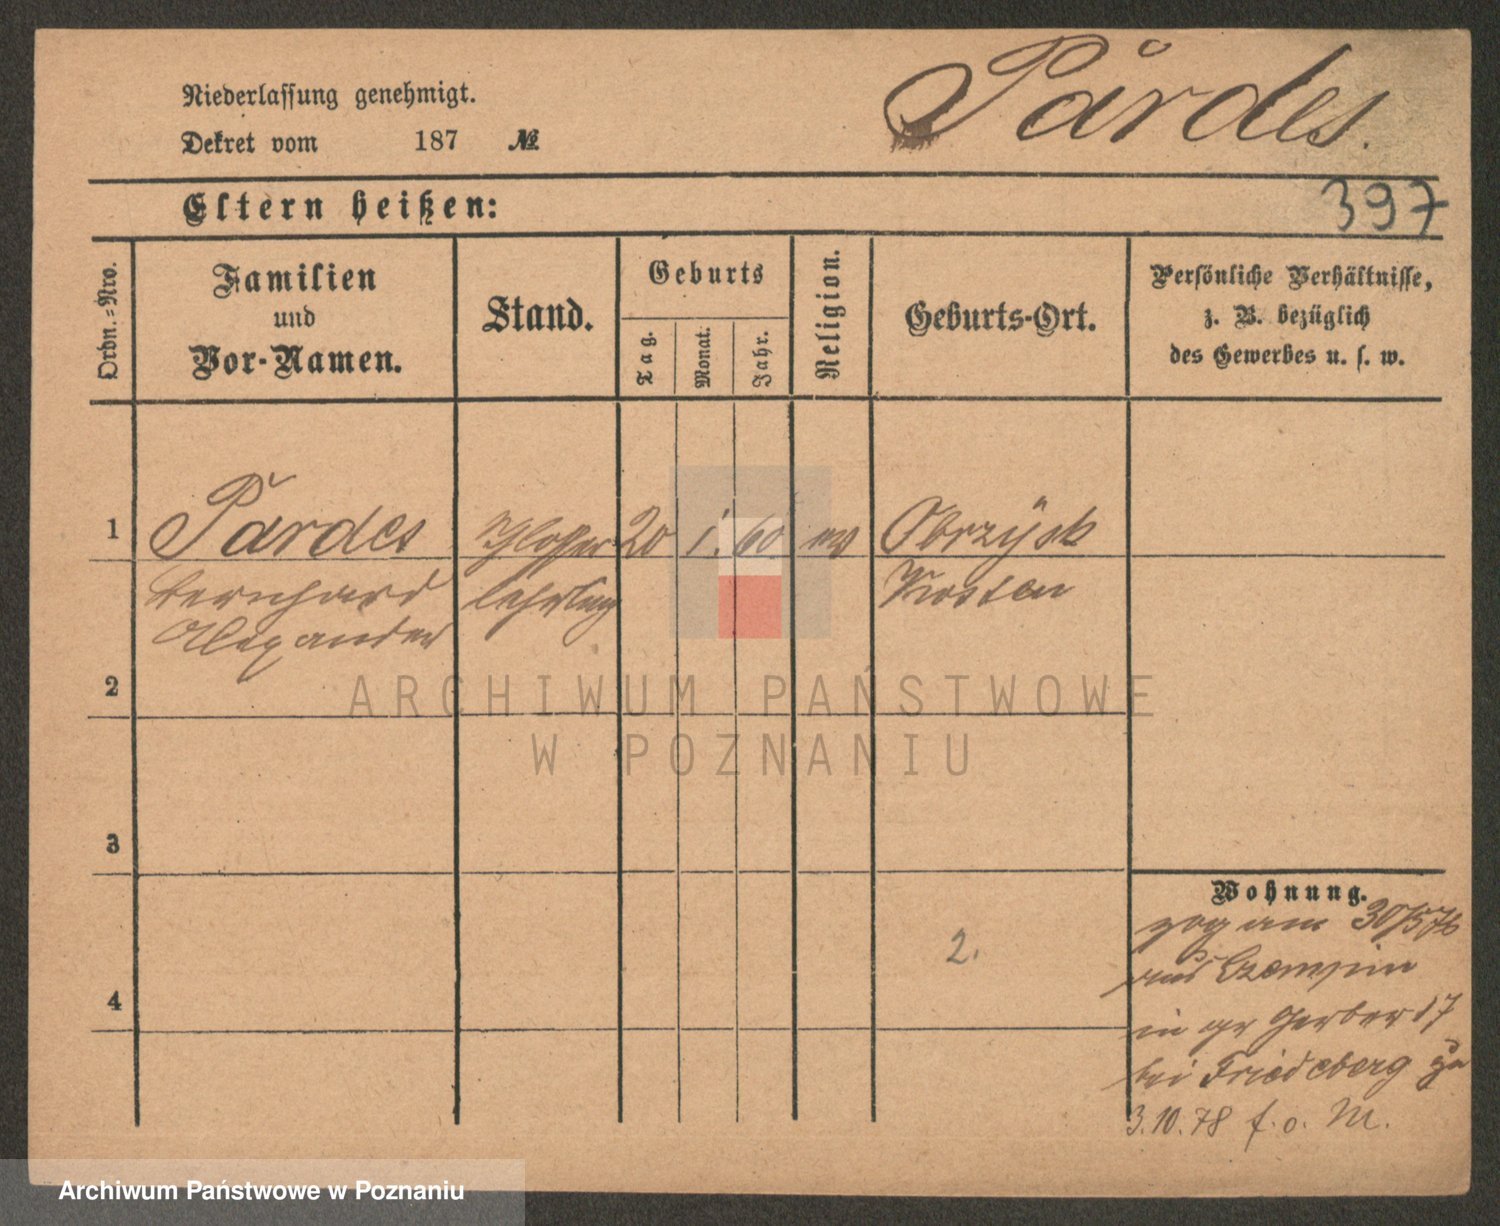 Niederlassung genehmigt.
Dekret vom 187 №
Pårdes.
Eltern heißen:
397
Ordn.-Nro.
Familien
und
Vor-Namen.
Stand.
Geburts
Tag.
Monat.
Jahr.
Religion.
Geburts-Ort.
Persönliche Verhältnisse,
z. B. bezüglich
des Gewerbes u. s. w.
1 Pardes Schlosser 20 1. 60 ev Obrzysk
bernhard lehrling Kosten
Alexander
2
3
4
2.
Wohnung.
zog am 30/5 76
aus Czempin
in gr Gerber 17
bei Friedeberg zu
3.10.78 f. o. M.
ARCHIWUM PAŃSTWOWE
W POZNANIU
Archiwum Państwowe w Poznaniu